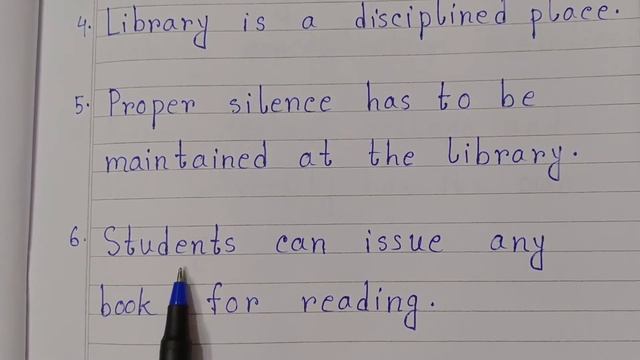 4. Library is a disciplined place.
5. Proper silence has to be
maintained at the library.
6. Students can issue any
book for reading.